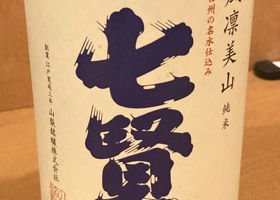 風凛美山 純米
甲州の名水仕込み
七賢
創業江戸寛延三年 山梨銘醸株式会社